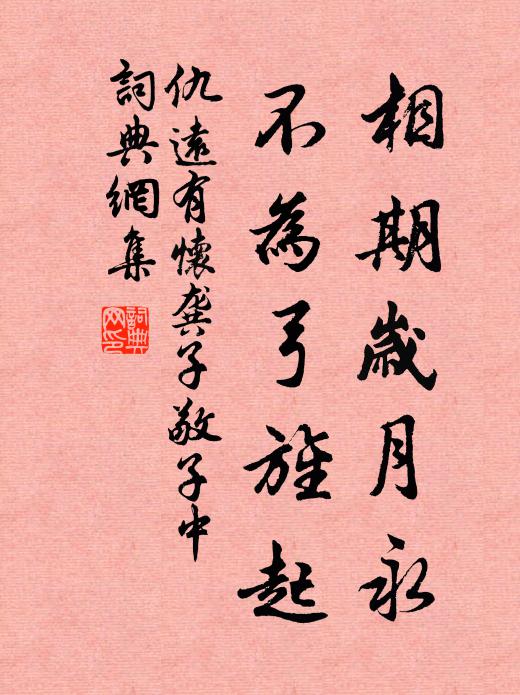 相期歲月永
不為弓旌起
仇遠有懷龔子敬子中
詞典網集
詞典網印